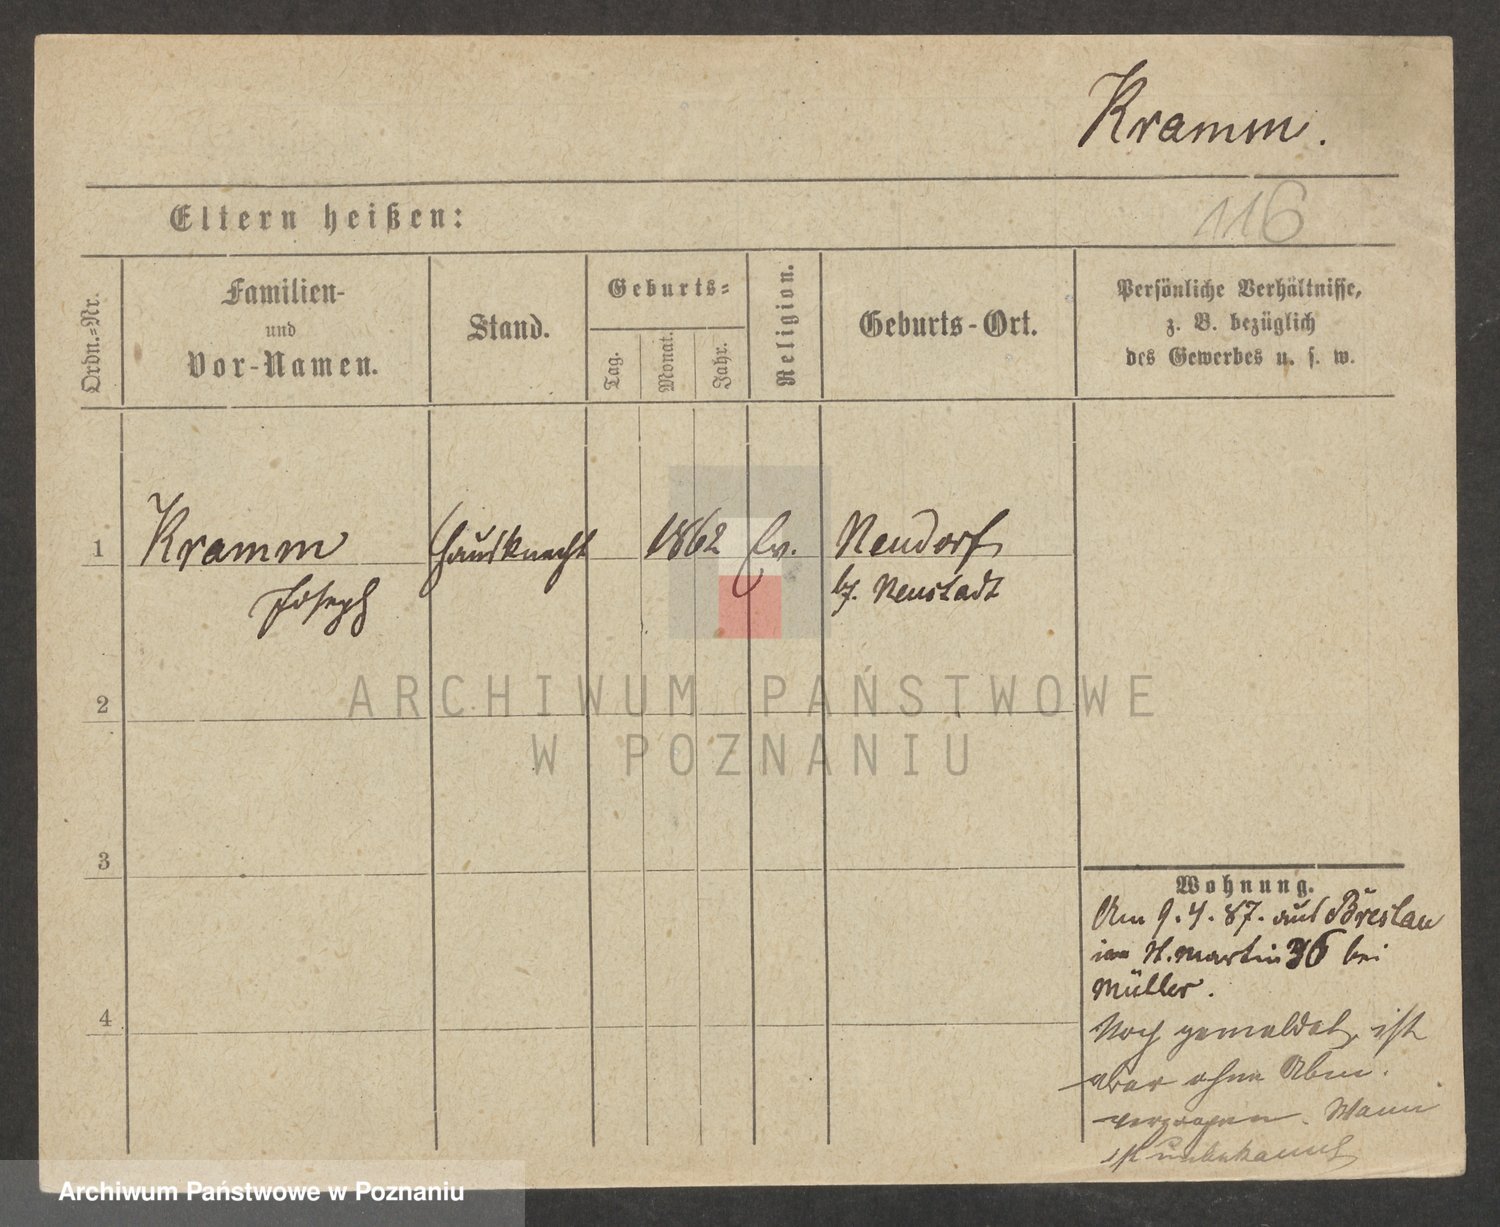 Kramm.
116
Eltern heißen:
Ordn.-Nr.
Familien-
und
Vor-Namen.
Stand.
Geburts-
Tag.
Monat.
Jahr.
Religion.
Geburts-Ort.
Persönliche Verhältnisse,
z. B. bezüglich
des Gewerbes u. s. w.
1
Kramm
Joseph
Hausknecht
1862
Ev.
Neudorf
b/. Neustadt
2
3
4
Wohnung.
Am 9.4.87. aus Breslau
Martin 36 bei
Müller.
Noch gemeldet, ist
aber ohne Abm.
verzogen. Wann
ist unbekannt
ARCHIWUM PAŃSTWOWE
W POZNANIU
Archiwum Państwowe w Poznaniu